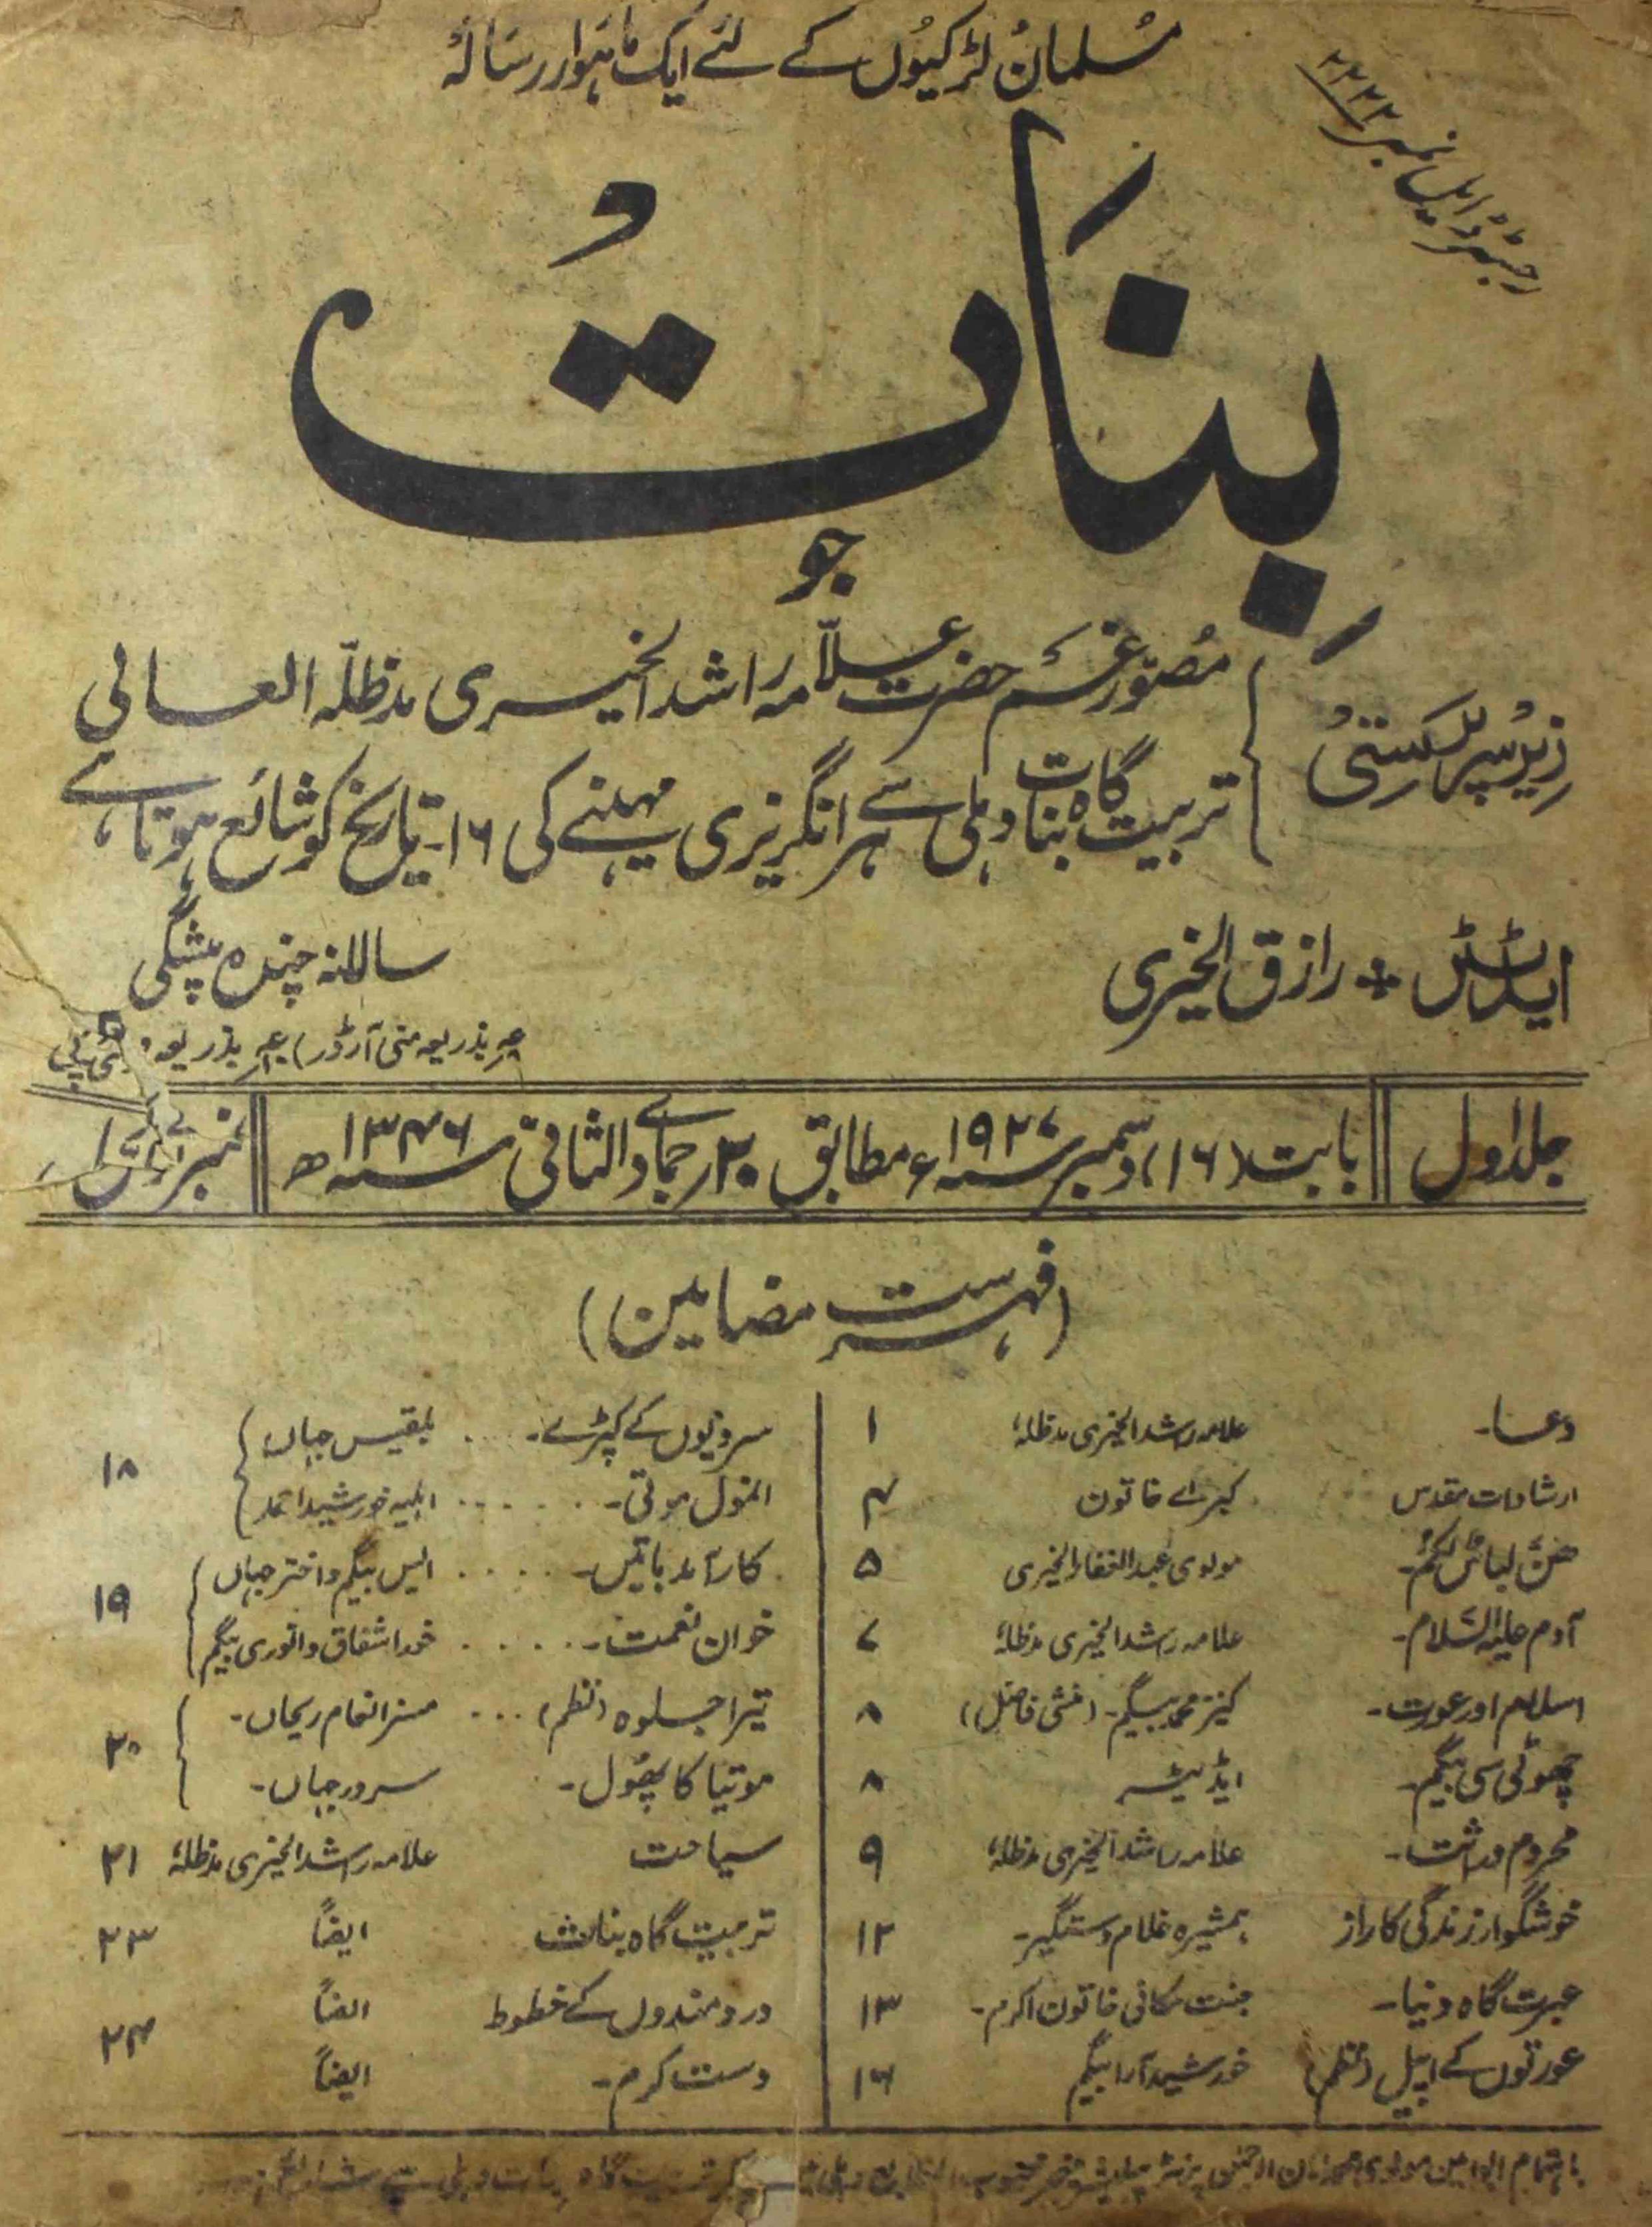 مسلمان لڑکیوں کے لئے ایک ماہوار رسالہ
رجسٹرڈ ایل نمبر ۲۲۲۳
بنات
جو
زیر سرپرستی
مصور غم حضرت علامہ راشد الخیری مدظلہ العالی
تربیت گاہ بنات دہلی سے ہر انگریزی مہینے کی ۱۶۔ تاریخ کو شائع ہوتا ہے
ایڈیٹر رازق الخیری
سالانہ چندہ پیشگی
بذریعہ منی آرڈر) بذریعہ وی پی
جلد اول
بابت (۱۶) دسمبر سنہ ۱۹۲۷ء مطابق ۲۰ جمادے الثانی سنہ ۱۳۴۶ھ
نمبر
(فہرست مضامین)
دعا۔ علامہ راشد الخیری مدظلہٗ ۱
ارشادات مقدس کبرےٰ خاتون ۴
ھن لباس لکم۔ مولوی عبد الغفار الخیری ۵
آدم علیہ السلام۔ علامہ راشد الخیری مدظلہٗ ۷
اسلام اور عورت۔ کنیز محمد بیگم۔ (منشی فاضل) ۸
چھوٹی سی بیگم۔ ایڈیٹر ۸
محروم وراثت۔ علامہ راشد الخیری مدظلہٗ ۹
خوشگوار زندگی کا راز ہمشیرہ غلام دستگیر۔ ۱۲
عبرت گاہ دنیا۔ جنت مکانی خاتون اکرم۔ ۱۳
عورتوں کے اپیل (نظم) خورشید آرا بیگم ۱۶
سردیوں کے کپڑے۔ .... بلقیس جہاں ۱۸
انمول موتی۔ ...... اہلیہ خورشید احمد
کارآمد باتیں۔ ..... انیس بیگم و اختر جہاں ۱۹
خوان نعمت۔ ..... خورا شفاق و انوری بیگم
تیرا جلوہ (نظم) ... مسز انعام ریحاں۔ ۲۰
موتیا کا پھول۔ سرور جہاں۔
سیاحت علامہ راشد الخیری مدظلہٗ ۲۱
تربیت گاہ بنات ایضاً ۲۳
درد مندوں کے خطوط ایضاً ۲۴
دست کرم۔ ایضاً
باہتمام